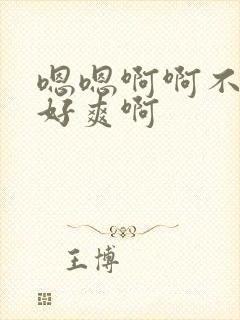 嗯嗯啊啊不
好爽啊
王博